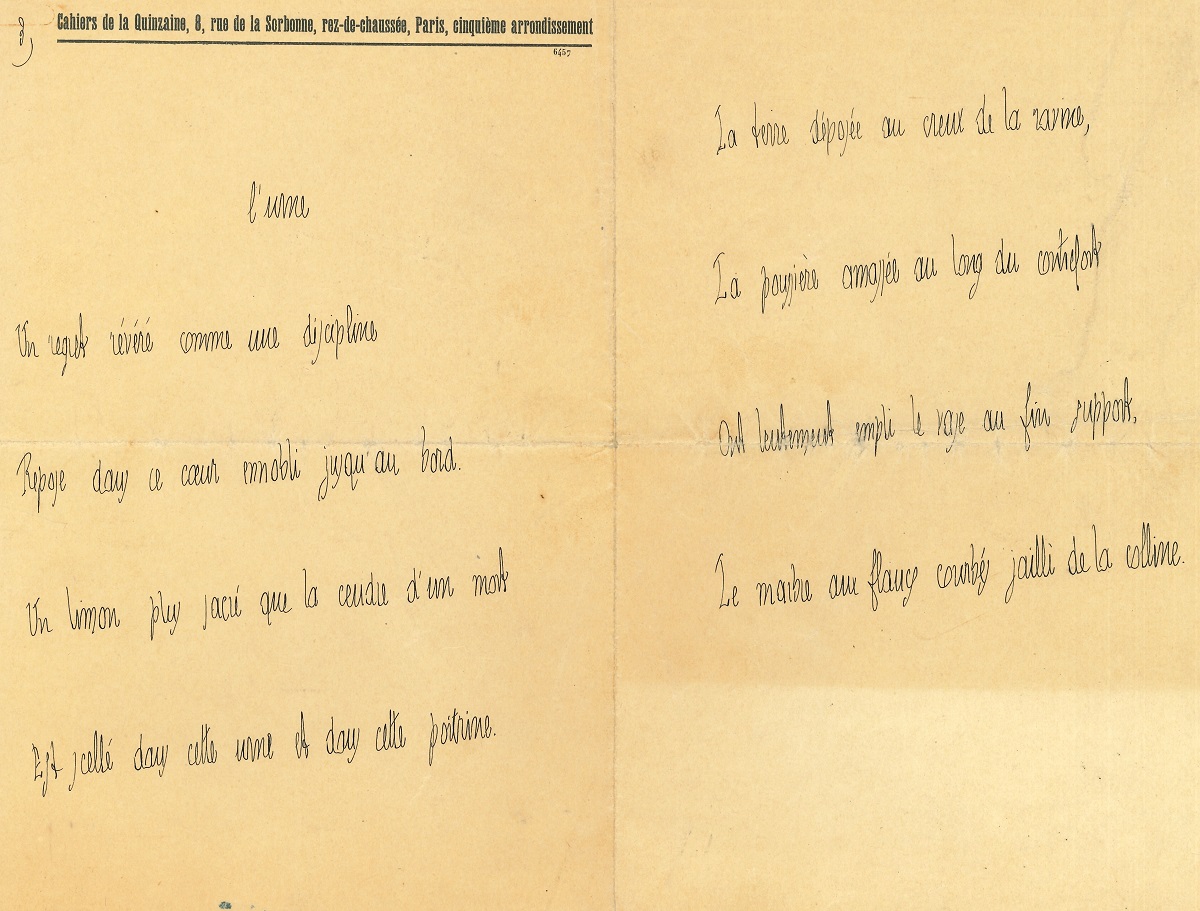 Cahiers de la Quinzaine, 8, rue de la Sorbonne, rez-de-chaussée, Paris, cinquième arrondissement
6457
l'urne
Un regret révéré comme une discipline
Repose dans ce cœur ennobli jusqu'au bord.
Un limon plus sacré que la cendre d'un mort
Est scellé dans cette urne et dans cette poitrine.
La terre déposée au creux de la ravine,
La poussière amassée au long du contrefort
Ont lentement empli le vase au fin support,
Le marbre aux flancs courbés jailli de la colline.